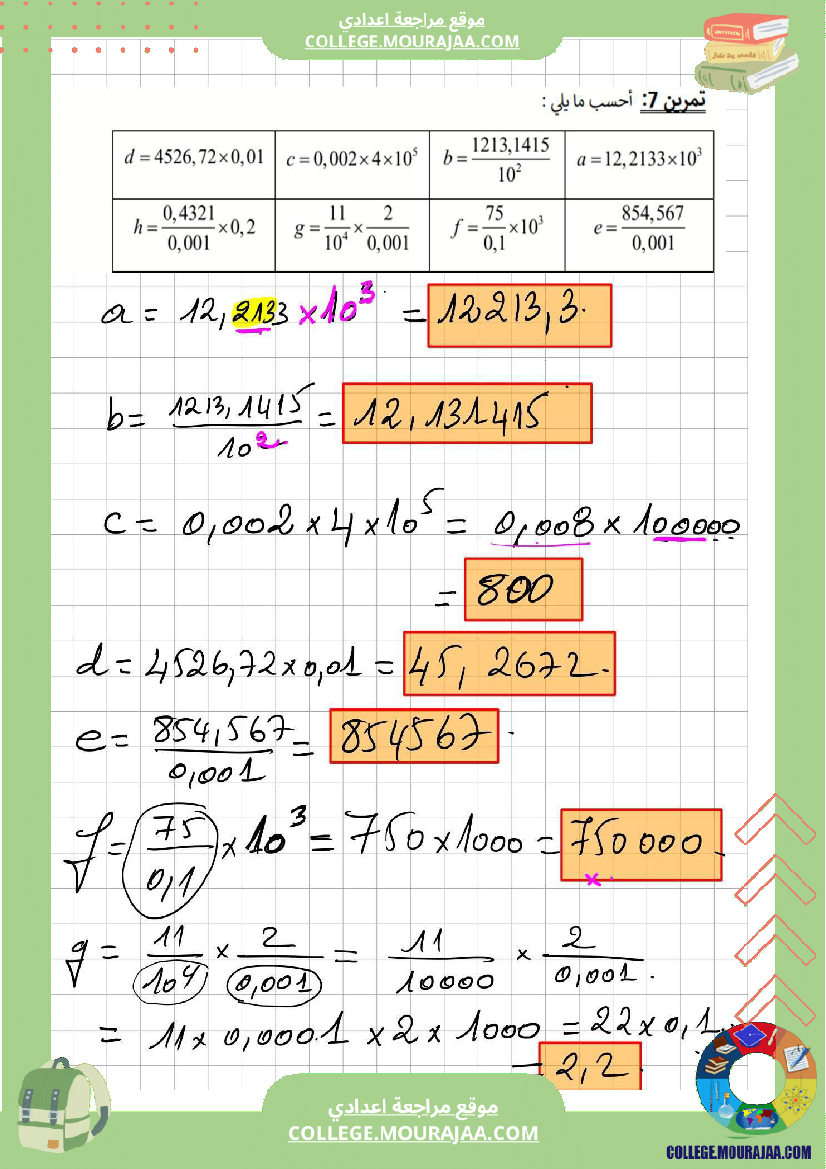 موقع مراجعة اعدادي
COLLEGE.MOURAJAA.COM
تمرين 7: أحسب ما يلي :
d = 4526,72×0,01 c = 0,002×4×10⁵ b = 1213,1415/10² a = 12,2133×10³
h = 0,4321/0,001 ×0,2 g = 11/10⁴ × 2/0,001 f = 75/0,1 ×10³ e = 854,567/0,001
a = 12,2133 ×10³ = 12213,3.
b = 1213,1415/10² = 12,131415
c = 0,002 × 4 × 10⁵ = 0,008 × 100000
= 800
d = 4526,72 × 0,01 = 45, 2672.
e = 854,567/0,001 = 854567.
f = 75/0,1 × 10³ = 750 × 1000 = 750 000.
×
g = 11/10⁴ × 2/0,001 = 11/10000 × 2/0,001.
= 11 × 0,0001 × 2 × 1000 = 22 × 0,1
= 2,2
موقع مراجعة اعدادي
COLLEGE.MOURAJAA.COM
COLLEGE.MOURAJAA.COM